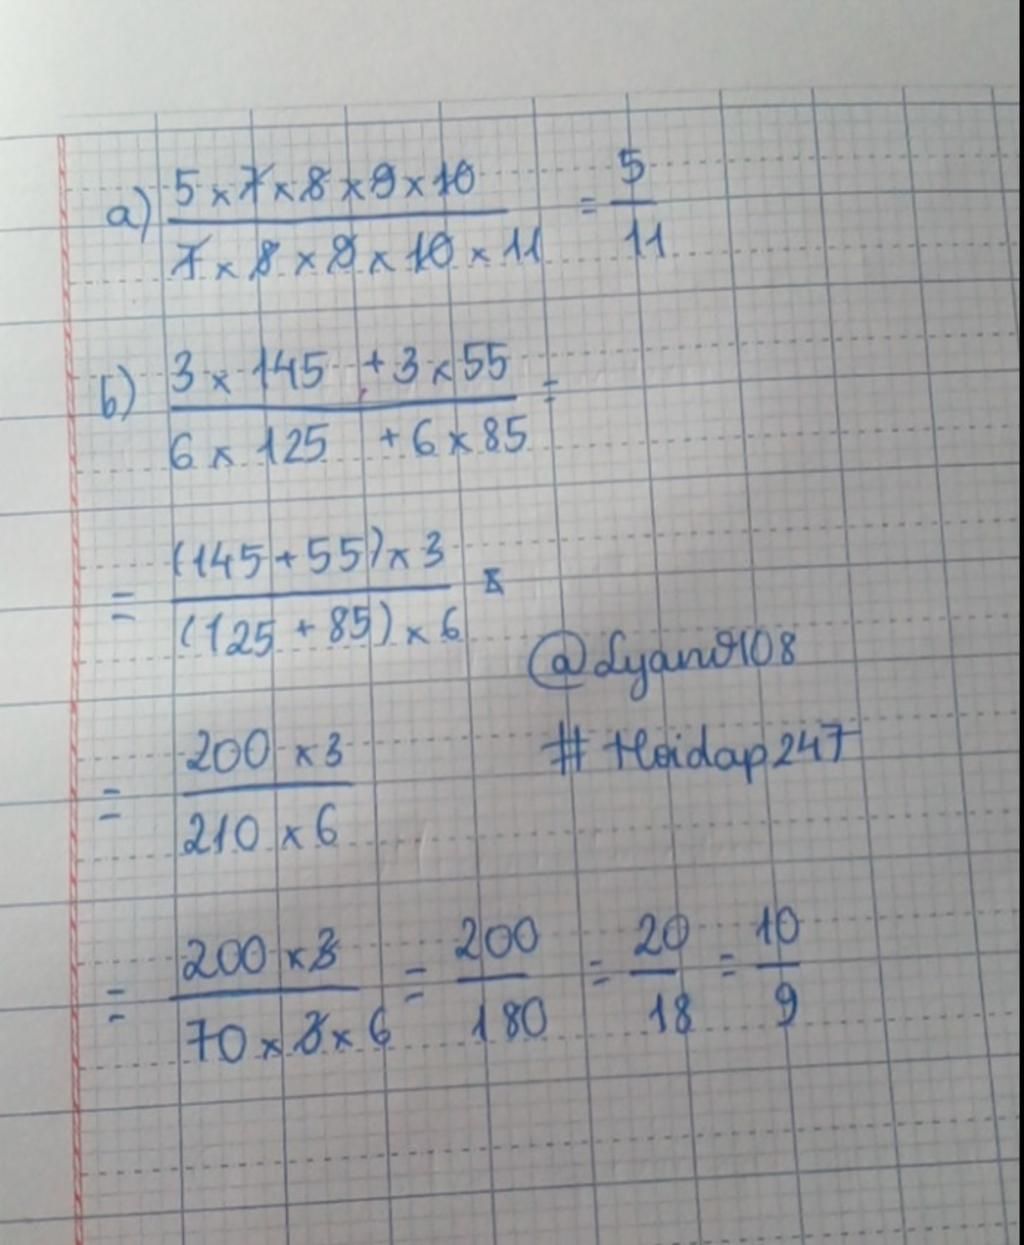 a) 5 × 7 × 8 × 9 × 10 / 7 × 8 × 9 × 10 × 11 = 5 / 11
b) 3 × 145 + 3 × 55 / 6 × 125 + 6 × 85 =
= (145 + 55) × 3 / (125 + 85) × 6
@Lyan9108
= 200 × 3 / 210 × 6
# Hoidap247
= 200 × 3 / 70 × 3 × 6 = 200 / 180 = 20 / 18 = 10 / 9